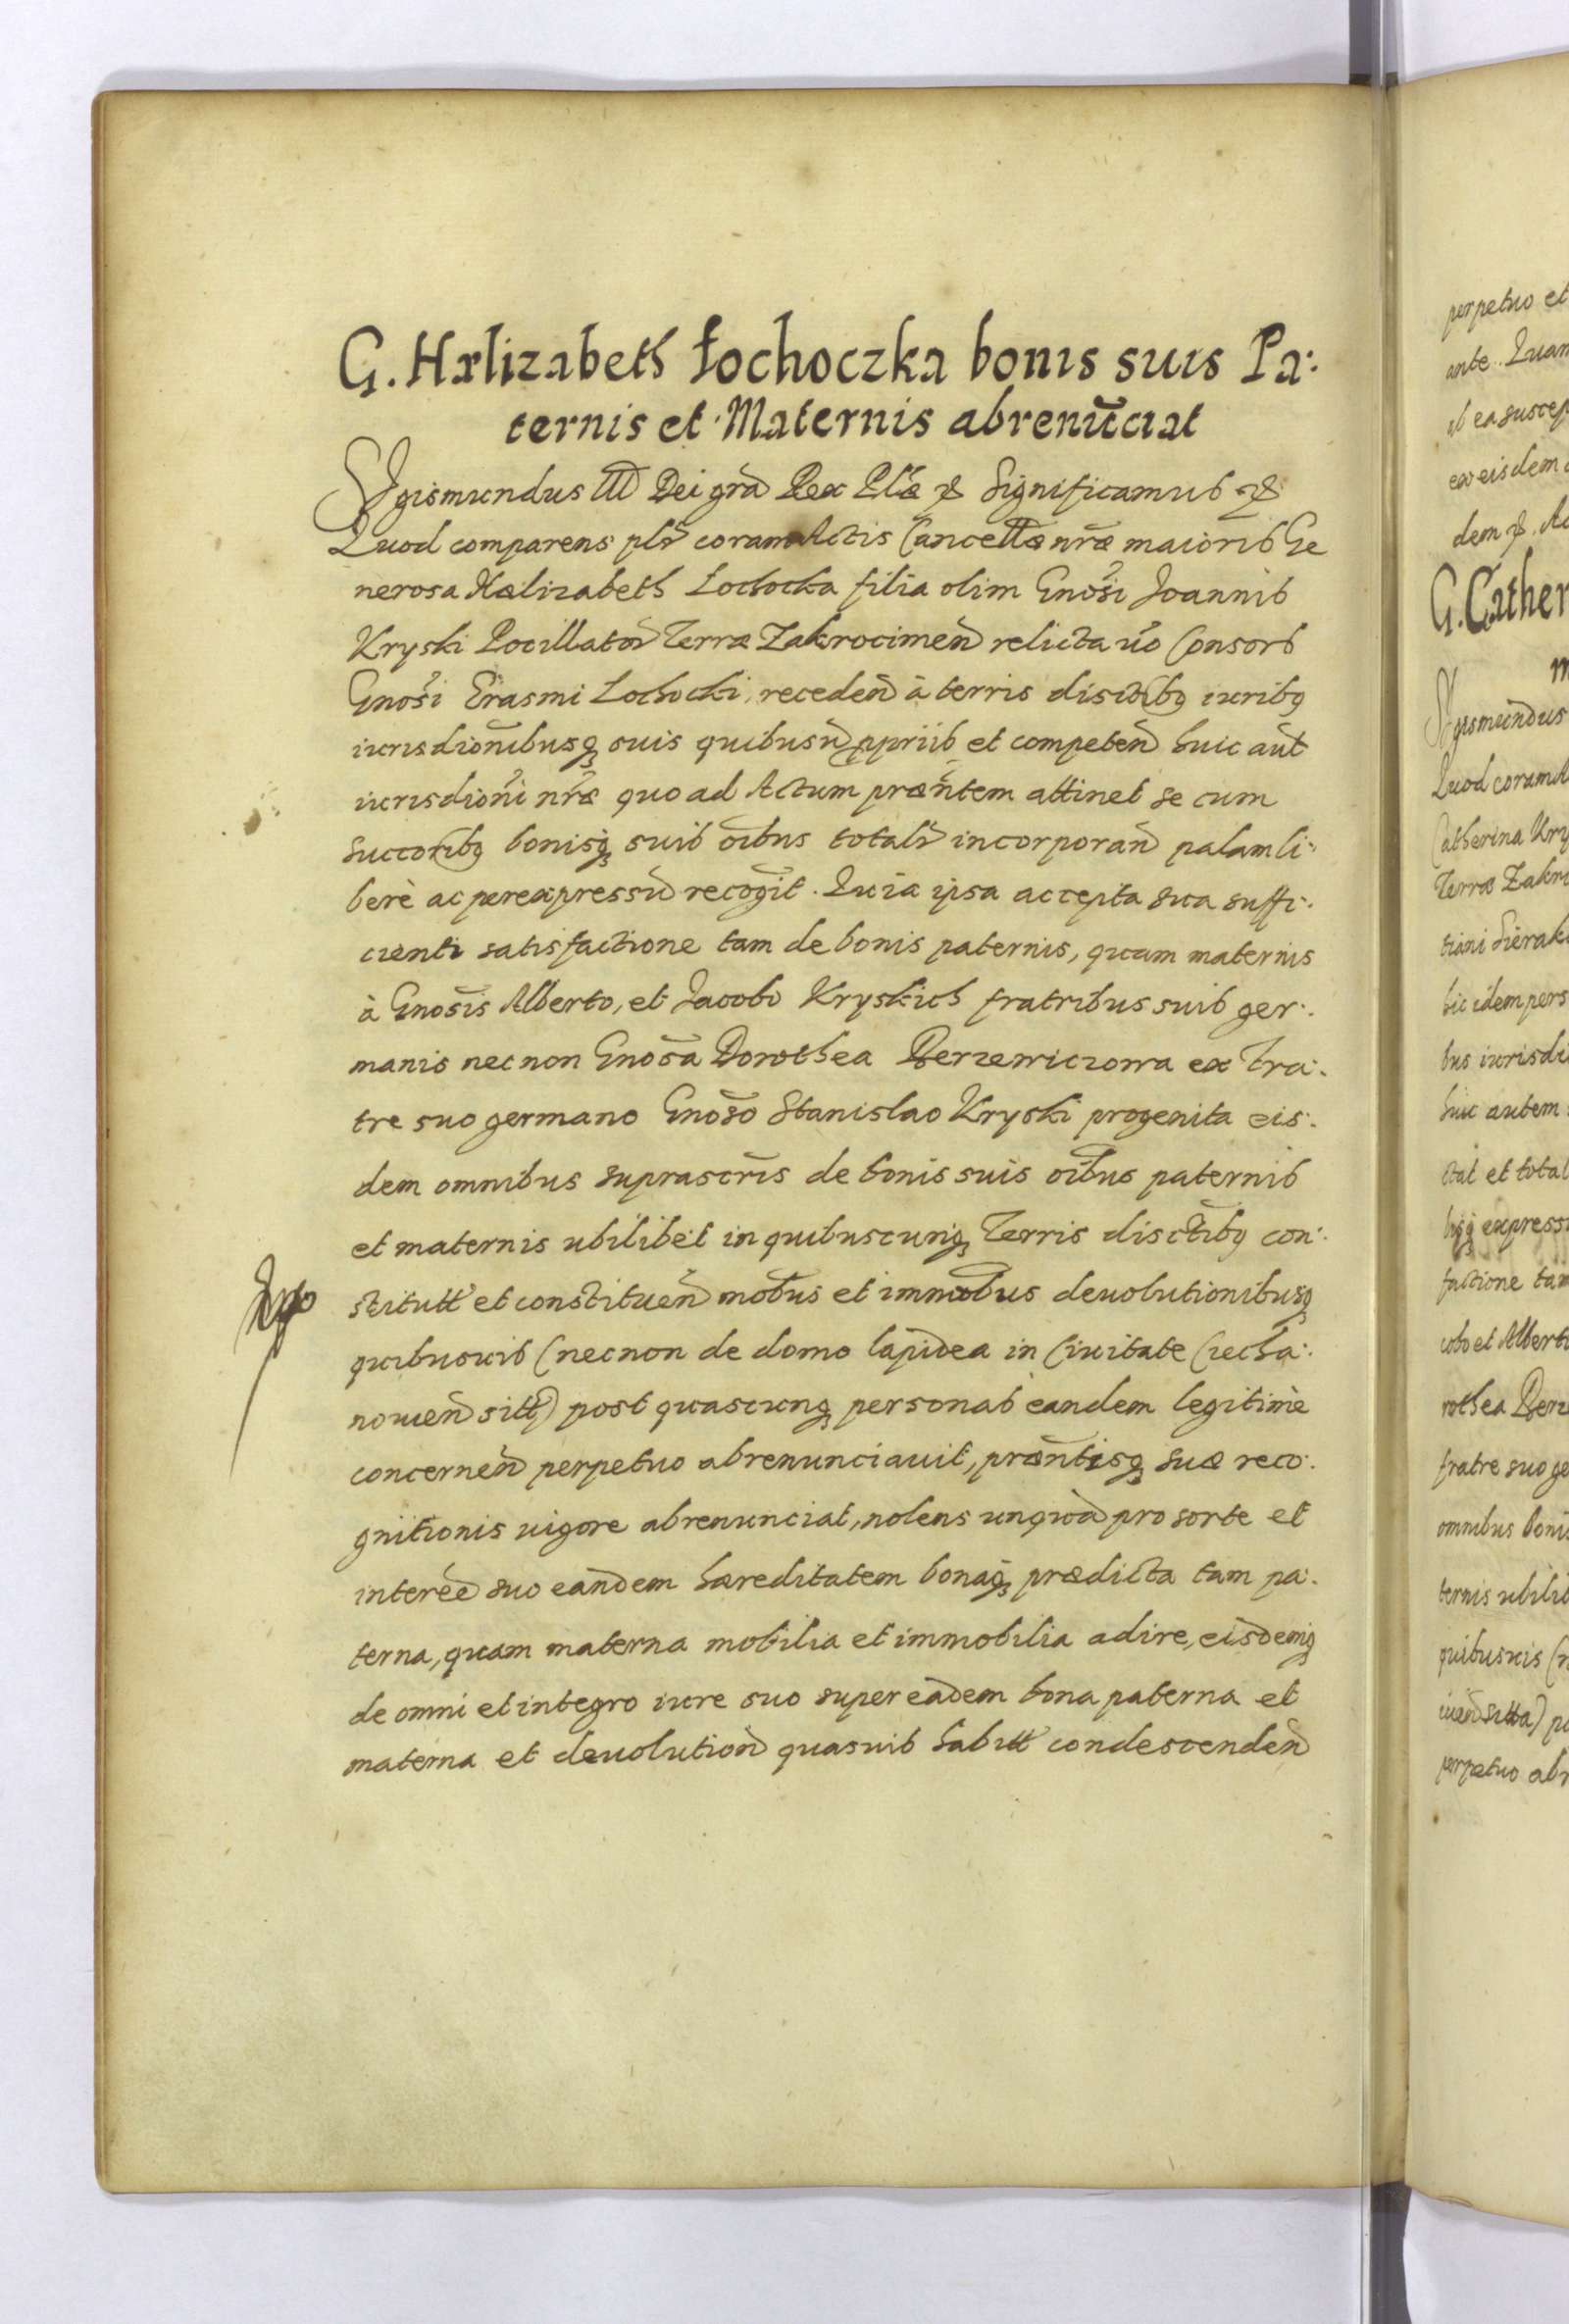 G. Hælizabeth Łochoczka bonis suis Pa:
ternis et Maternis abrenūciat
Sigismundus III Dei grã Rex Plæ &c Significamus &c
Quod comparens plr coram Actis Cancellæ nræ maioris Ge
nerosa Hælizabeth Lochocka filia olim Gnosi Joannis
Kryski Pocillator Terræ Zakrocimen relicta vo Consors
Gnosi Erasmi Lochocki, receden à terris disctibq iuribq
iurisdionibusq suis quibusu ppriis et competen huic aut
iurisdioni nræ quo ad Actum præntem attinet se cum
succoribq bonisq suis oibus totalr incorporan palam li:
berè ac per expressu recogit. Quia ipsa accepta sua suffi:
cienti satisfactione tam de bonis paternis, quam maternis
à Gnosis Alberto, et Jacobo Kryskich fratribus suis ger:
manis nec non Gnosa Dorothea Berzewiczowa ex fra:
tre suo germano Gnoso Stanislao Kryski progenita eis:
dem omnibus suprascris de bonis suis oibus paternis
et maternis ubilibet in quibuscunq Terris disctibq con:
stitutt et constituen mobus et immobus devolutionibusq
quibusuis (nec non de domo lapidea in Ciuitate Ciecha:
nouien sitt) post quascunq personas eandem legitimè
concernen perpetuo abrenunciauit, præntisq suæ reco:
gnitionis uigore abrenunciat, nolens unqua pro sorte et
interee suo eandem hæreditatem bonaq prædicta tam pa:
terna, quam materna mobilia et immobilia adire, eisdemq
de omni et integro iure suo super eadem bona paterna et
materna et deuolution quasuis habitt condescenden
perpetuo et
ante. Quam
ex eisdem
dem &c. Ac
G. Cather
Sigismundus
Quod coram A
Catherina Kry
Terræ Zakro
tioni Sierak
hic idem pers
bus iurisdi
huic autem
ctat et total
bqq expressu
factione tam
cobo et Alberto
rothea Berze
fratre suo ge
omnibus bonis
ternis ubilib
quibusuis (n
perpetuo abr